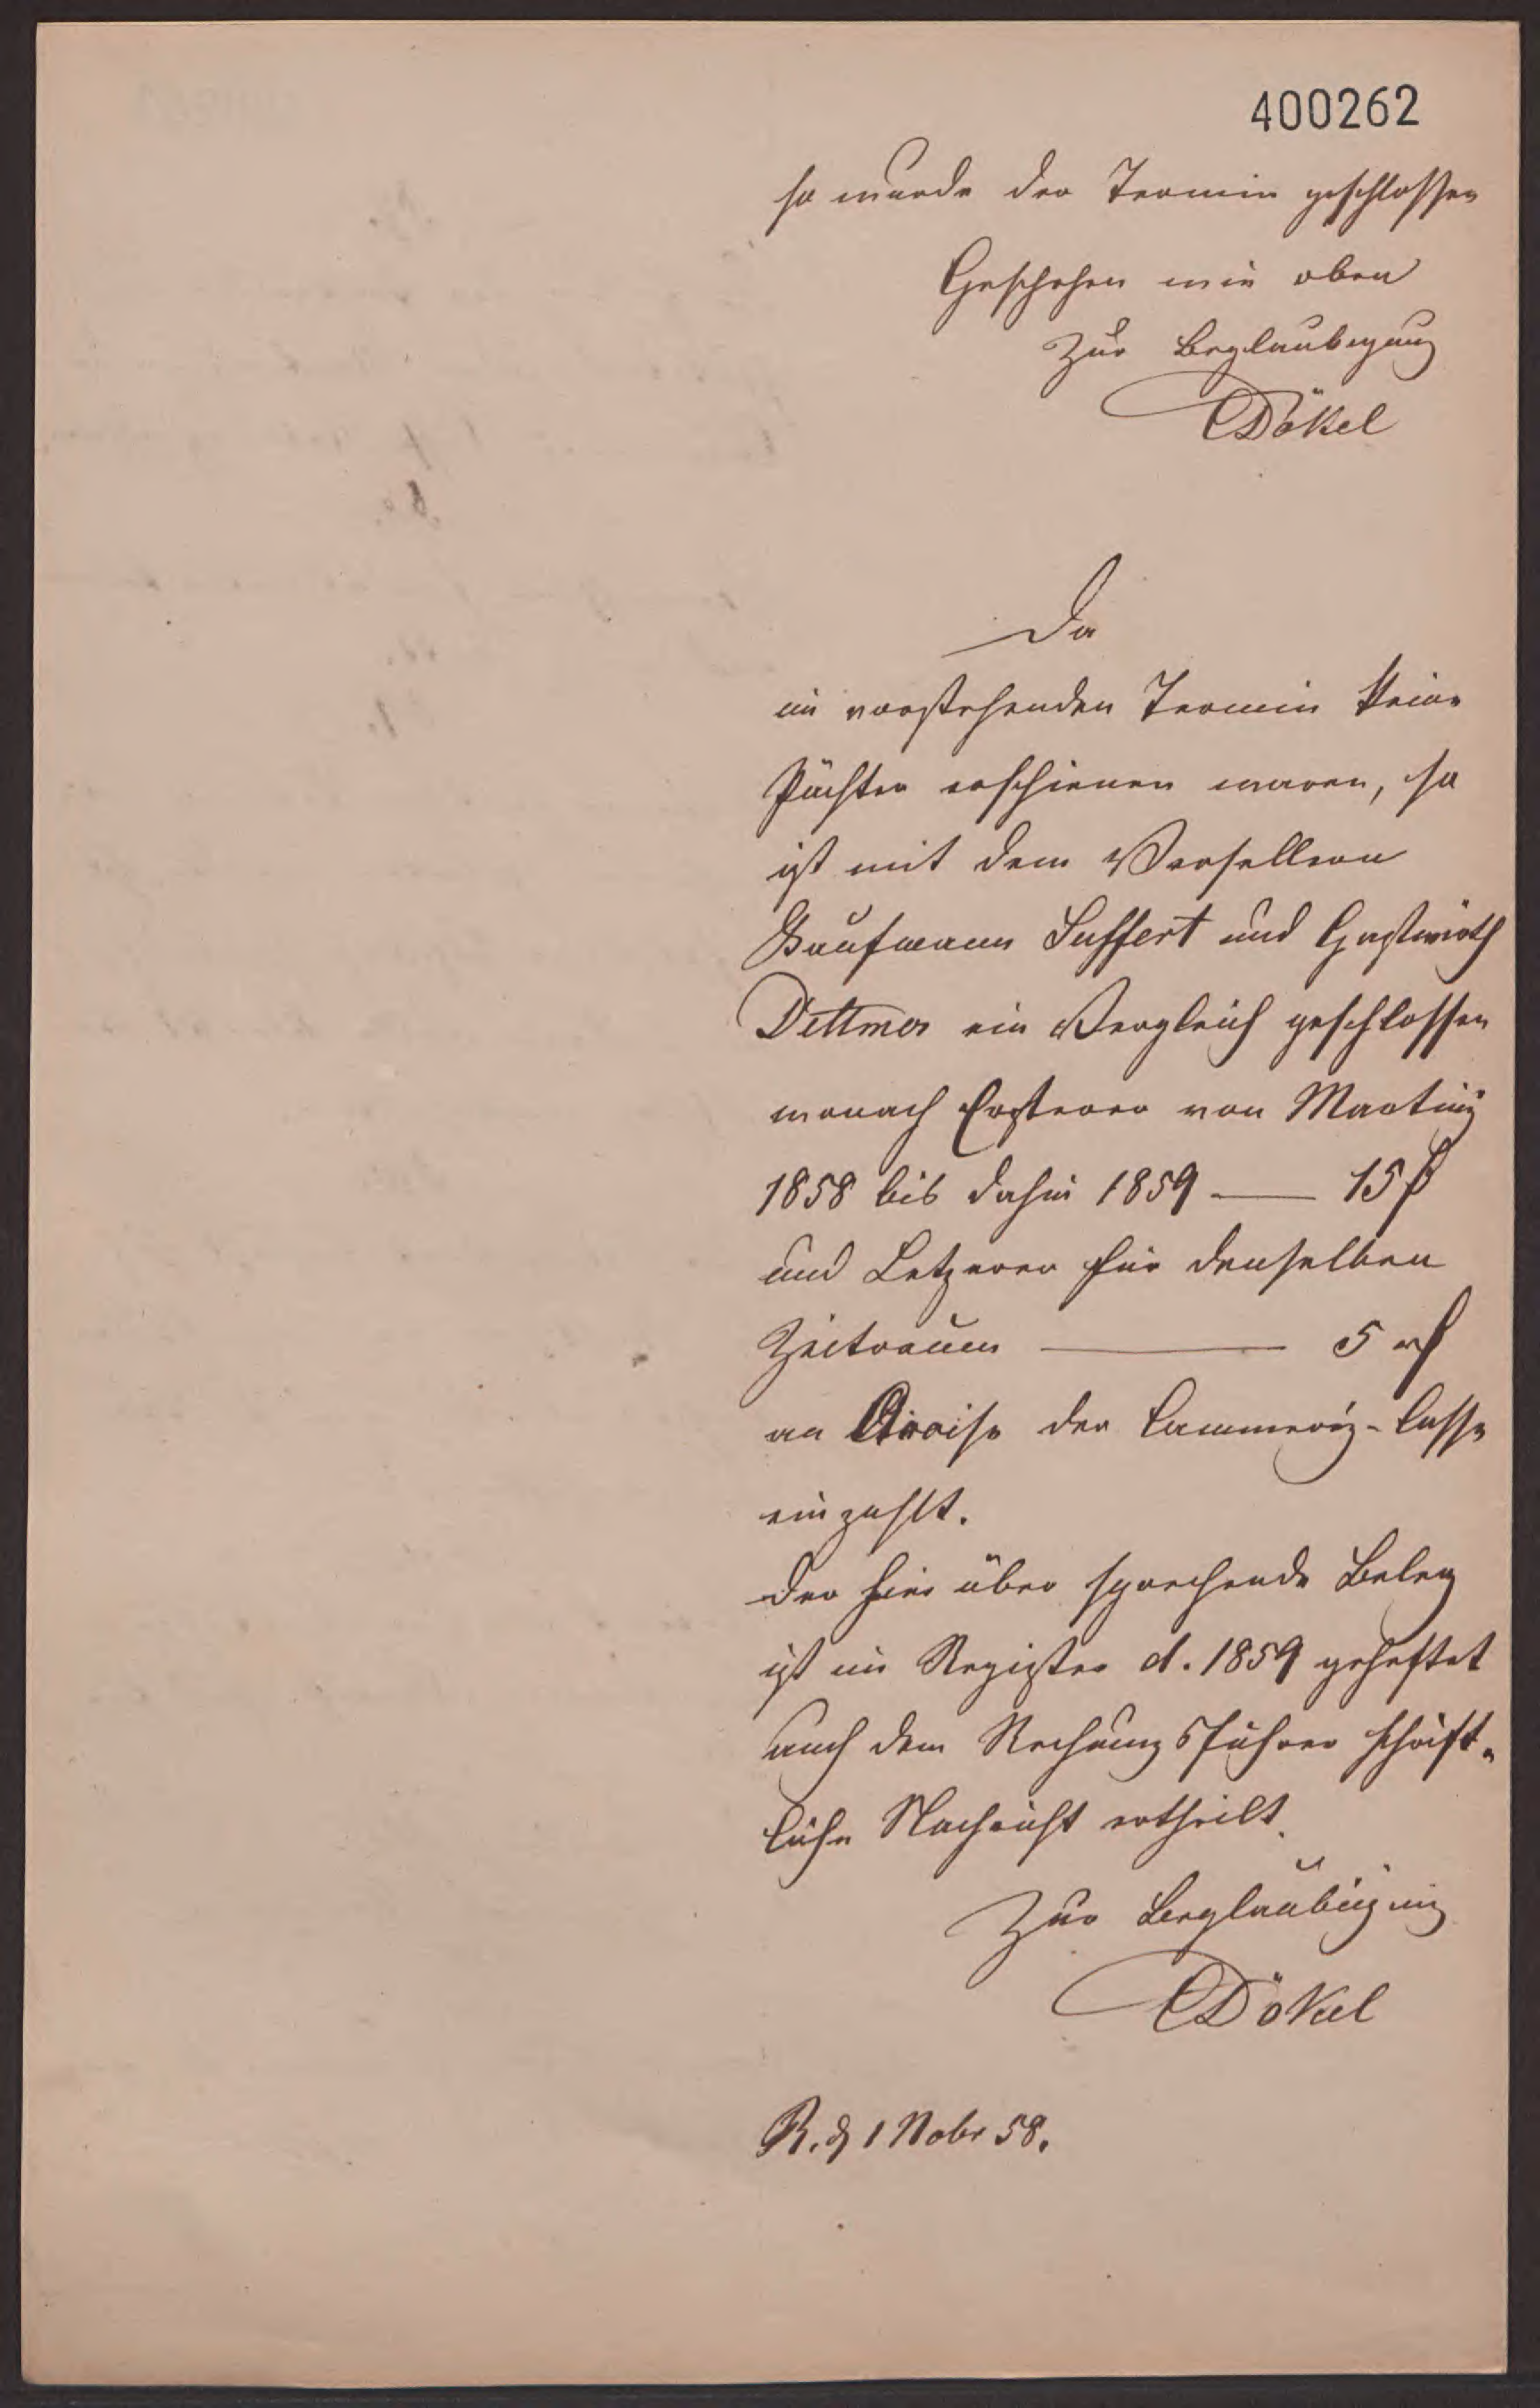 400262
so wurde der Termin geschlossen
Geschehen wie oben
Zur Beglaubigung
Dökel
Da
im vorstehenden Termin keine
Pächter erschienen waren, so
ist mit dem
Kaufmann Suffert und Gastwirth
Dettmer ein Vergleich geschlossen
wonach Ersterer von Martiny
1858 bis dahin 1859 — 15
und Letzerer für denselben
Zeitraum — 5 rf
an Accise der Cammerey-Casse
einzahlt.
Der hier über sprechende Beleg
ist im Register d. 1859 geheftet
auch dem Rechnungsführer schrift-
liche Nachricht ertheilt.
Zur Beglaubigung
Dökel
R. d 1 Nobr 58.